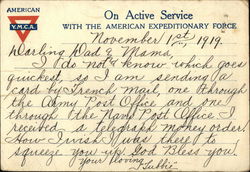 AMERICAN
Y.M.C.A.
On Active Service
WITH THE AMERICAN EXPEDITIONARY FORCE
November 1st, 1919.
Darling Dad & Mama,
I do not know which goes
quickest, so I am sending a
card by French Mail, one through
the Army Post Office and one
through the Navy Post Office. I
received a telegraph money order.
How I wish I was there to
squeeze you up. God Bless you.
Your loving